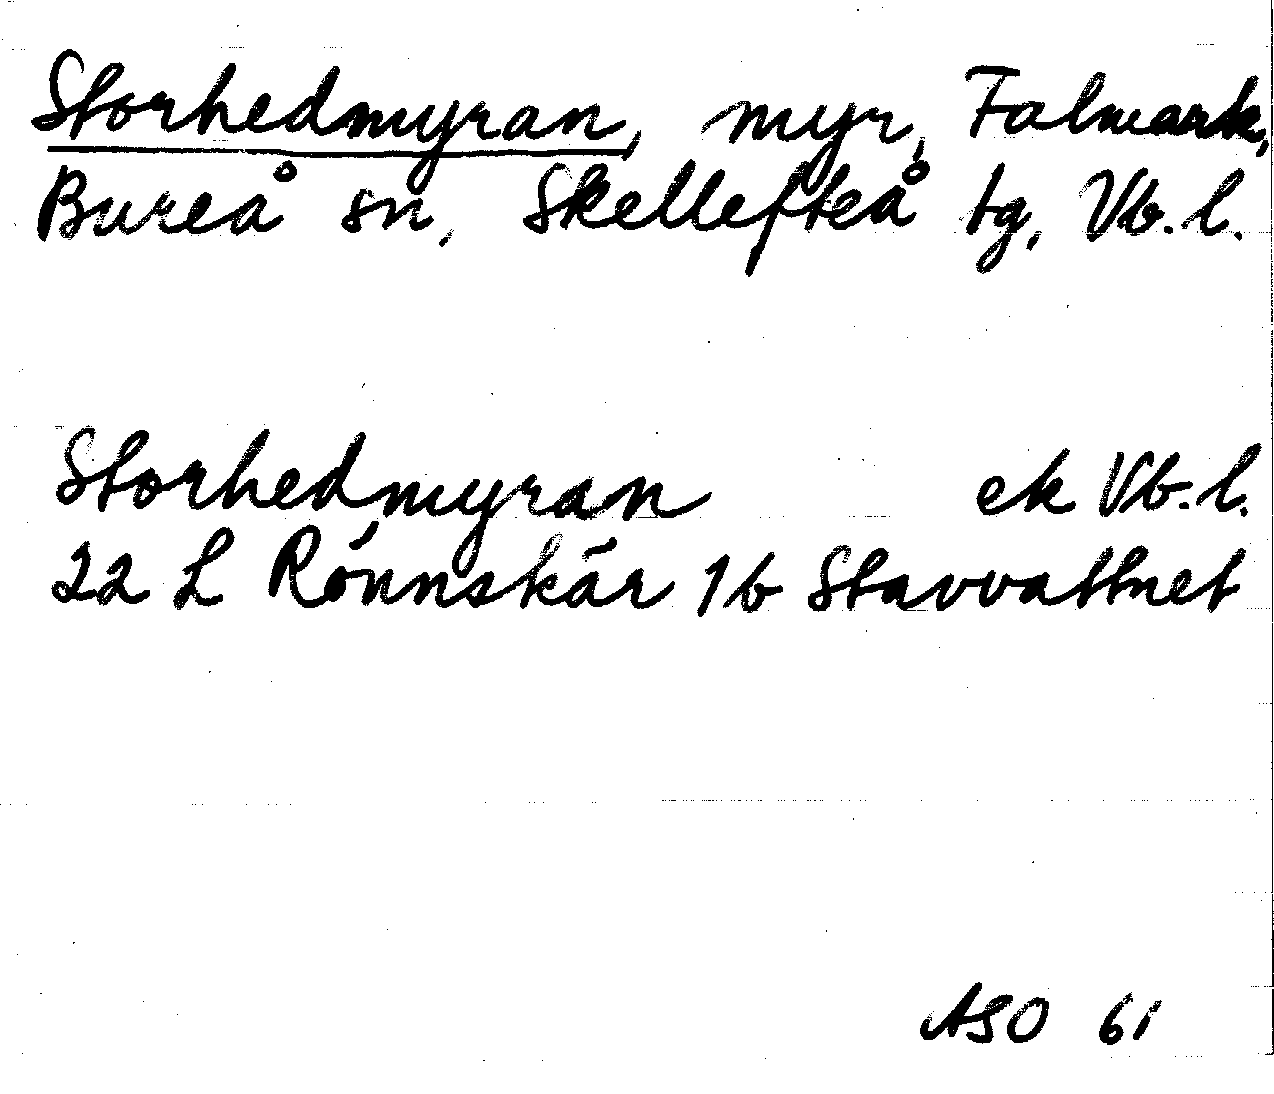 Storhedmyran, myr, Falmark,
Bureå sn, Skellefteå tg, Vb. l.
Storhedmyran ek Vb. l.
22 L Rönnskär 1b Stavvattnet
ASO 61